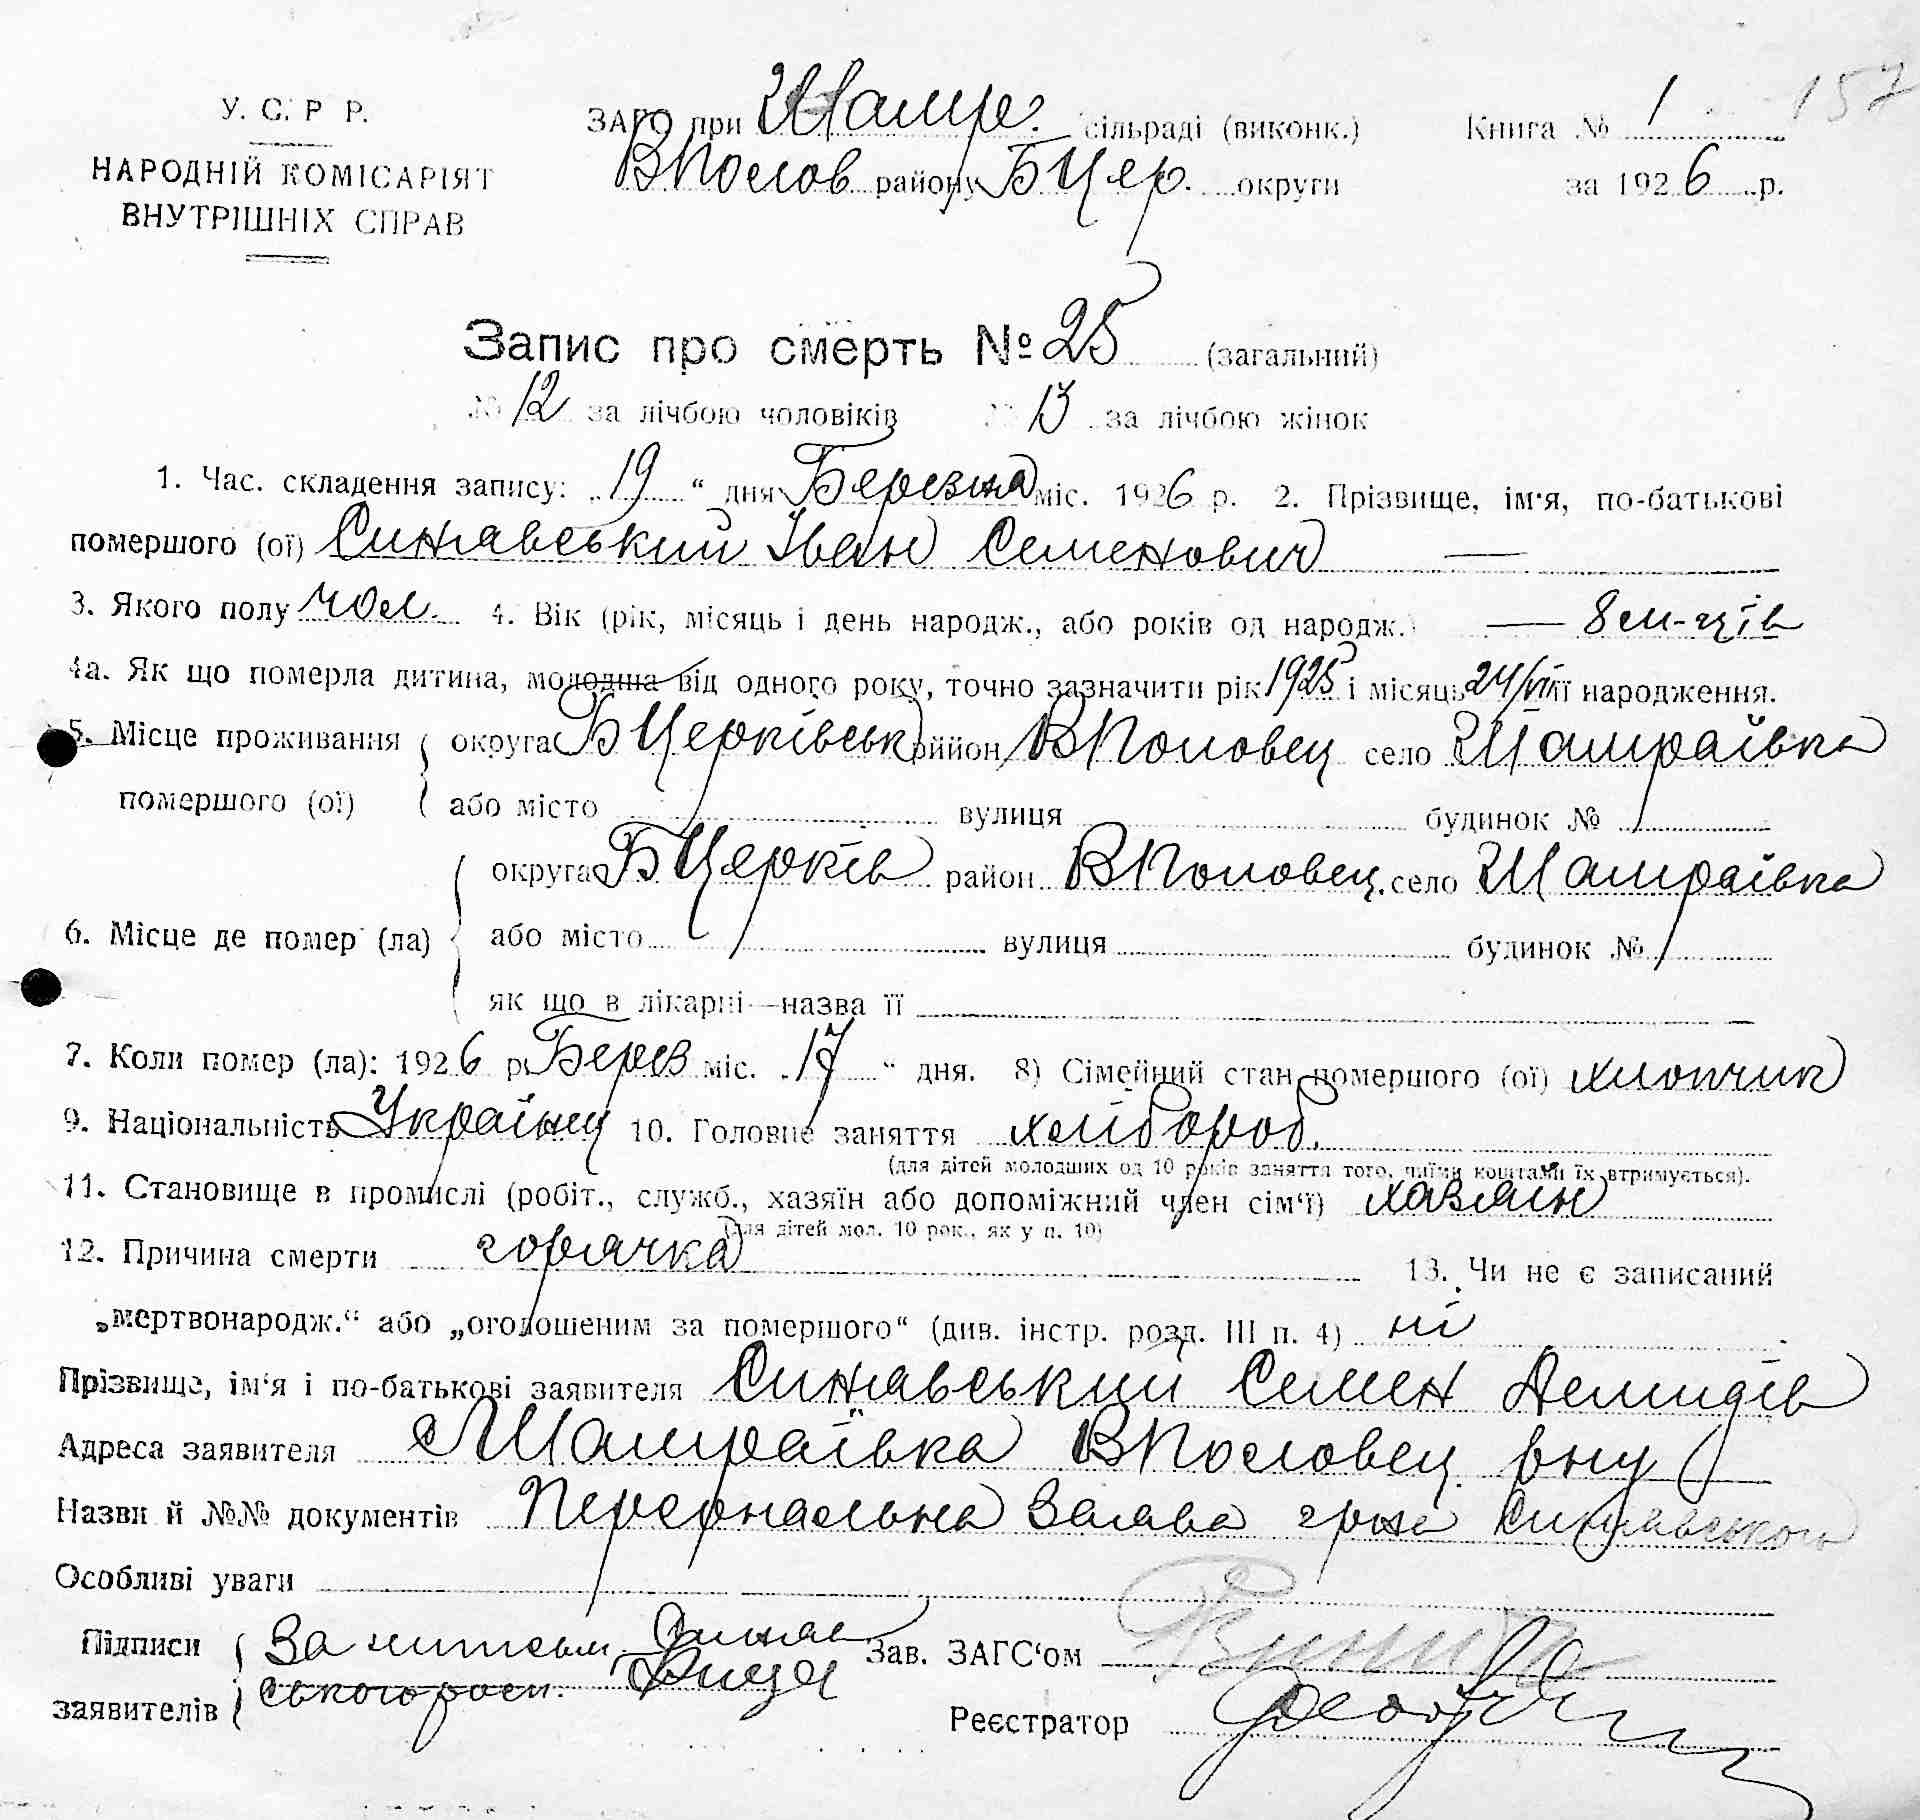 157
У. С. Р Р.
НАРОДНІЙ КОМІСАРІЯТ
ВНУТРІШНІХ СПРАВ
ЗАГС при Шамр. сільраді (виконк.)
ВПолов району БЦер. округи
Книга № 1
за 1926 р.
Запис про смерть № 25 (загальний)
№ 12 за лічбою чоловіків № 13 за лічбою жінок
1. Час. складення запису: „19“ дня Березня міс. 1926 р. 2. Прізвище, ім'я, по-батькові
помершого (ої) Синявський Іван Семенович —
3. Якого полу чол. 4. Вік (рік, місяць і день народж., або років од народж.) — 8 м-ців
4а. Як що померла дитина, молодша від одного року, точно зазначити рік 1925 і місяць 24/VII її народження.
5. Місце проживання помершого (ої) округа БЦерківськ район ВПоловец село Шамраївка
або місто вулиця будинок №
6. Місце де помер (ла) округа БЦерків район ВПоловец. село Шамраївка
або місто вулиця будинок №
як що в лікарні—назва її
7. Коли помер (ла): 1926 р. Берез міс. „17“ дня. 8) Сімейний стан помершого (ої) хлопчик
9. Національність Українц 10. Головне заняття хлібороб.
(для дітей молодших од 10 років заняття того, чиїми коштами їх втримується).
11. Становище в промислі (робіт., служб., хазяїн або допоміжний член сім'ї) хазяїн
(для дітей мол. 10 рок., як у п. 10)
12. Причина смерти горячка 13. Чи не є записаний
„мертвонародж.“ або „оголошеним за помершого“ (див. інстр. розд. III п. 4) ні
Прізвище, ім'я і по-батькові заявителя Синявський Семен Демидів
Адреса заявителя с Шамраївка ВПоловец. рну
Назви й №№ документів Персональна Заява грна Синявського
Особливі уваги
Підписи заявителів За неписьм. Синяв
ського росп.
Зав. ЗАГС'ом
Реєстратор